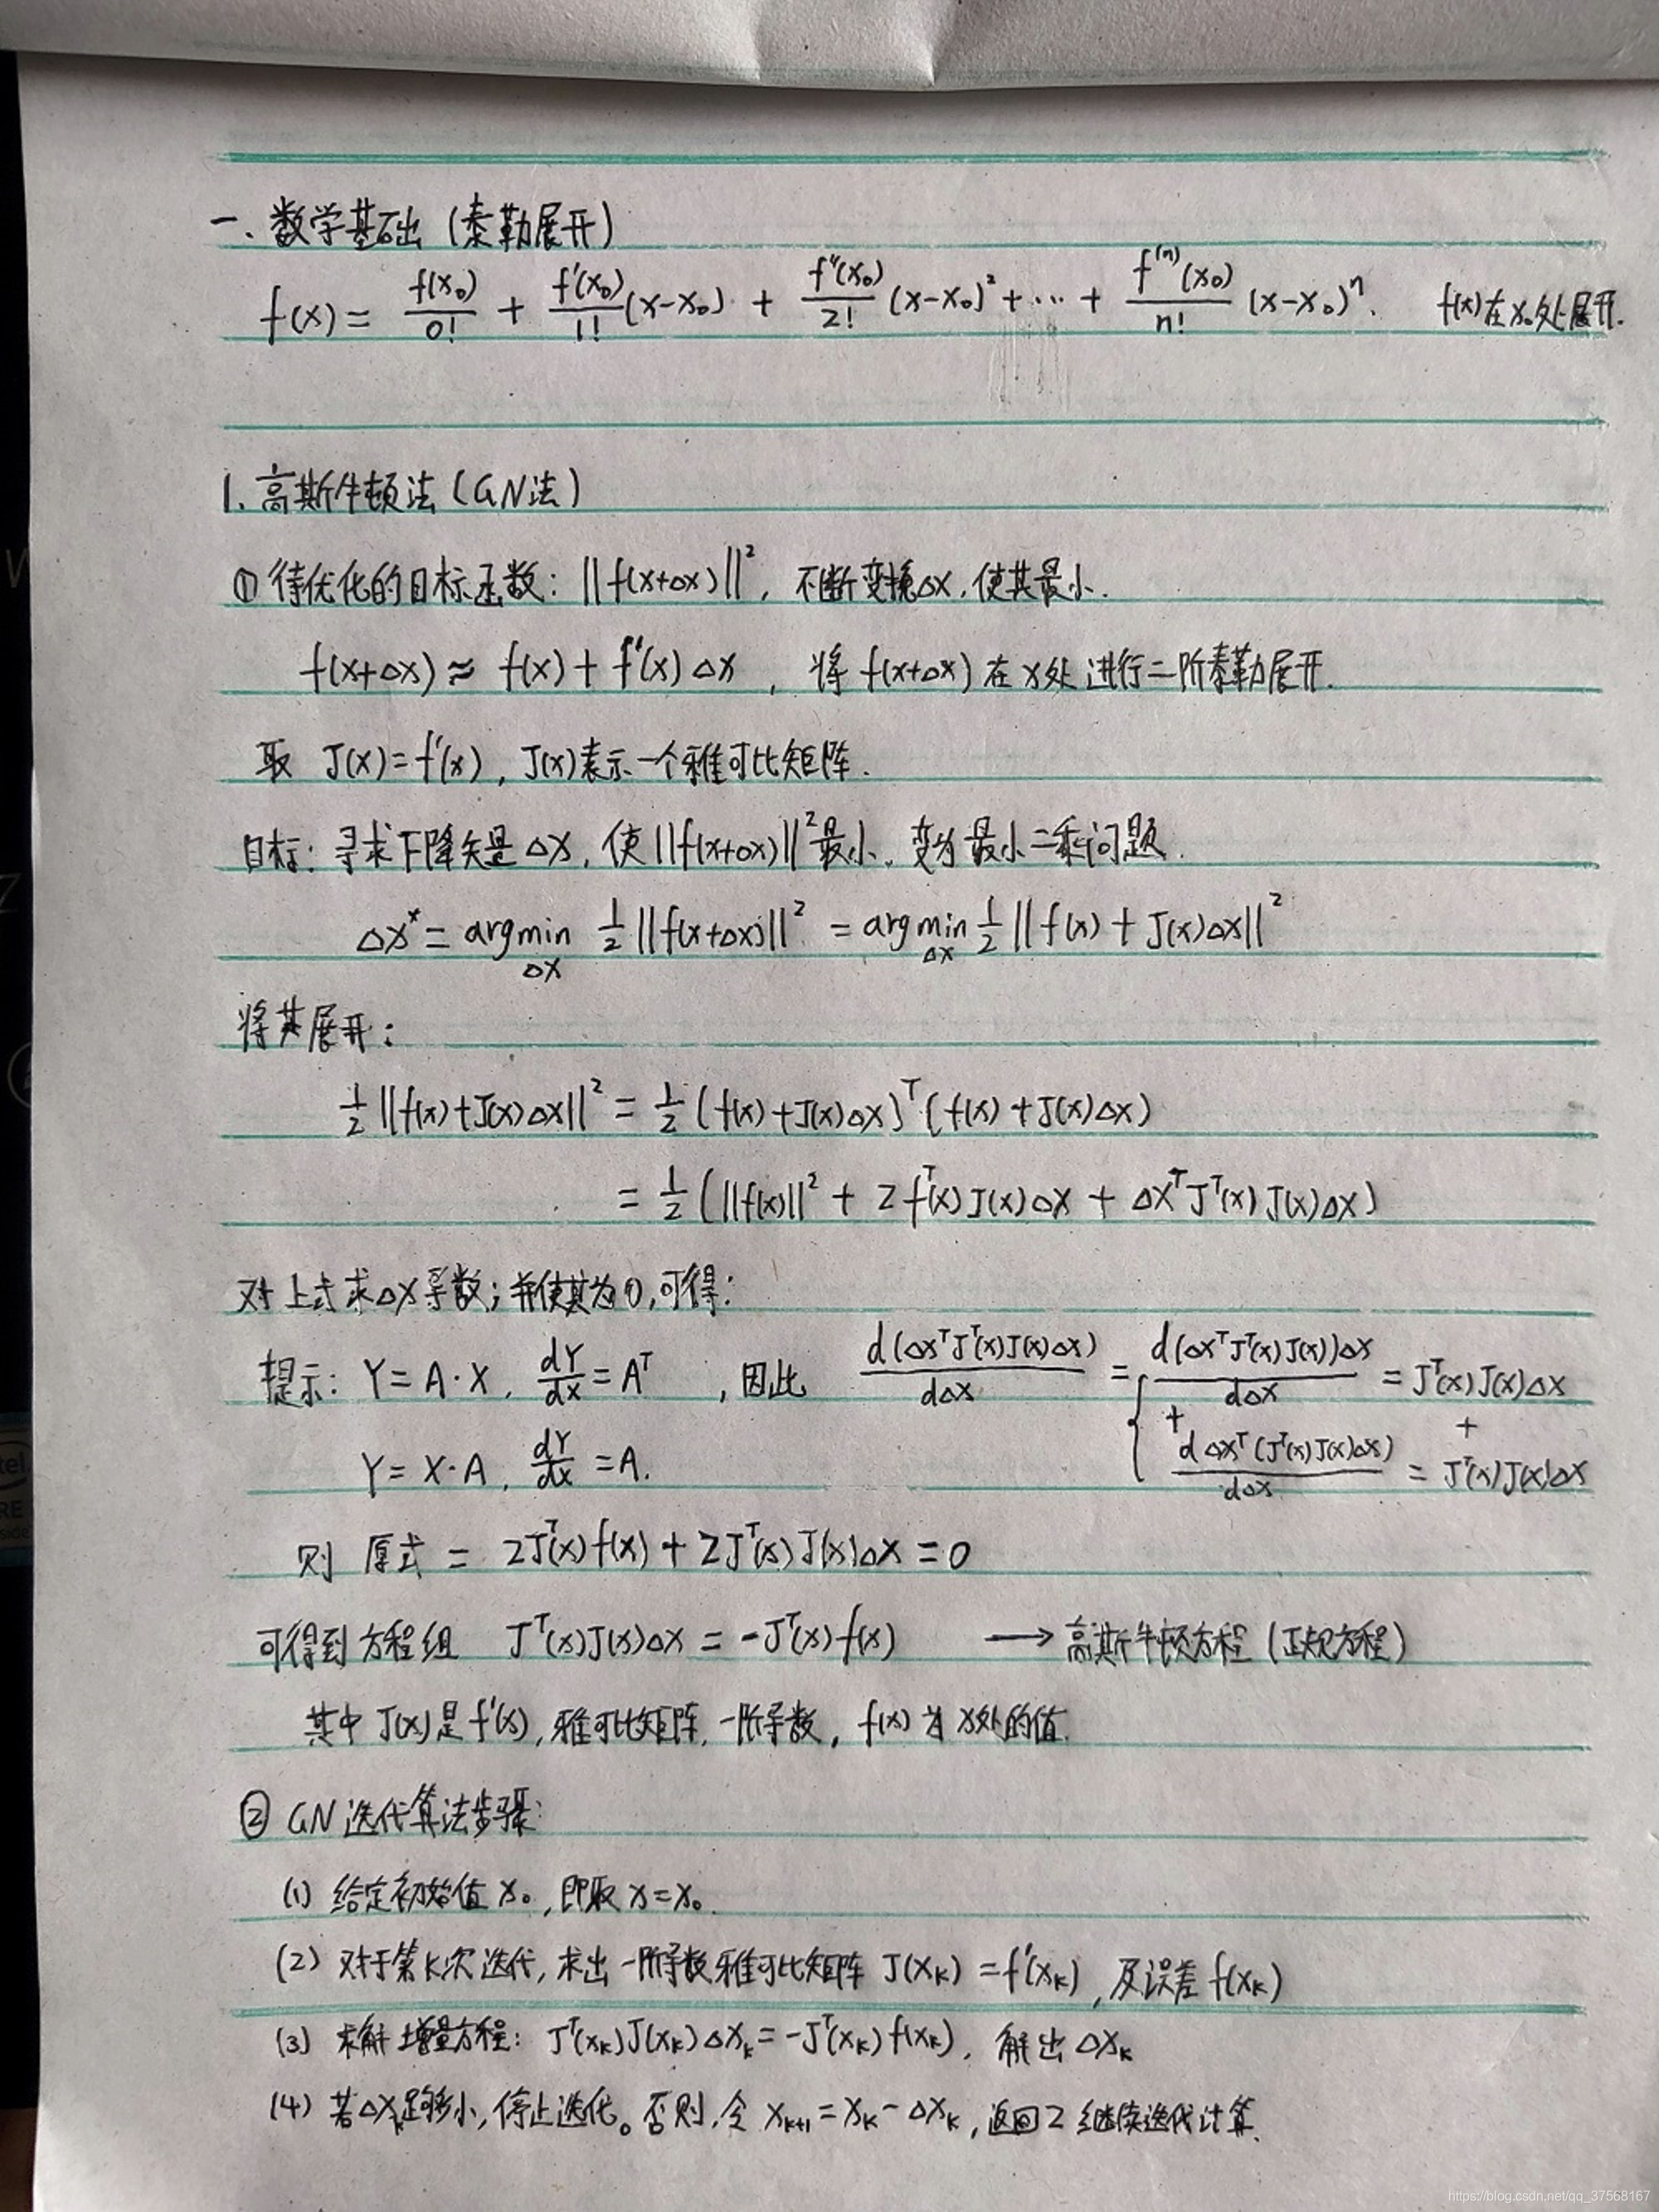 一. 数学基础 (泰勒展开)
f(x) = f(x₀)/0! + f'(x₀)/1! (x-x₀) + f''(x₀)/2! (x-x₀)² + … + f⁽ⁿ⁾(x₀)/n! (x-x₀)ⁿ. f(x)在x₀处展开.
1. 高斯牛顿法 (GN法)
① 待优化的目标函数: ||f(x+Δx)||², 不断变换Δx, 使其最小.
f(x+Δx) ≈ f(x) + f'(x) Δx , 将 f(x+Δx) 在 x处 进行二阶泰勒展开.
取 J(x) = f'(x), J(x)表示一个雅可比矩阵.
目标: 寻求下降矢量 Δx, 使 ||f(x+Δx)||² 最小, 变为 最小二乘问题.
Δx* = argmin_Δx 1/2 ||f(x+Δx)||² = argmin_Δx 1/2 ||f(x) + J(x)Δx||²
将其展开:
1/2 ||f(x)+J(x)Δx||² = 1/2 (f(x)+J(x)Δx)ᵀ (f(x)+J(x)Δx)
= 1/2 (||f(x)||² + 2fᵀ(x)J(x)Δx + ΔxᵀJᵀ(x)J(x)Δx)
对上式求Δx导数; 并使其为0, 可得:
提示: Y = A·X, dY/dx = Aᵀ , 因此 d(ΔxᵀJᵀ(x)J(x)Δx)/dΔx = { d(ΔxᵀJᵀ(x)J(x))Δx/dΔx = Jᵀ(x)J(x)Δx
+ +
Y = X·A, dY/dx = A. dΔxᵀ(Jᵀ(x)J(x)Δx)/dΔx = Jᵀ(x)J(x)Δx
则 原式 = 2Jᵀ(x)f(x) + 2Jᵀ(x)J(x)Δx = 0
可得到方程组 Jᵀ(x)J(x)Δx = -Jᵀ(x)f(x) → 高斯牛顿方程 (正规方程)
其中 J(x) 是 f'(x), 雅可比矩阵, 一阶导数, f(x) 为 x处的值.
② GN 迭代算法步骤:
(1) 给定初始值 x₀, 即取 x=x₀.
(2) 对于第k次迭代, 求出一阶导数雅可比矩阵 J(xₖ) = f'(xₖ), 及误差 f(xₖ)
(3) 求解增量方程: Jᵀ(xₖ)J(xₖ)Δxₖ = -Jᵀ(xₖ)f(xₖ), 解出 Δxₖ
(4) 若Δxₖ足够小, 停止迭代。否则, 令 xₖ₊₁ = xₖ - Δxₖ, 返回2 继续迭代计算.
https://blog.csdn.net/qq_37568167